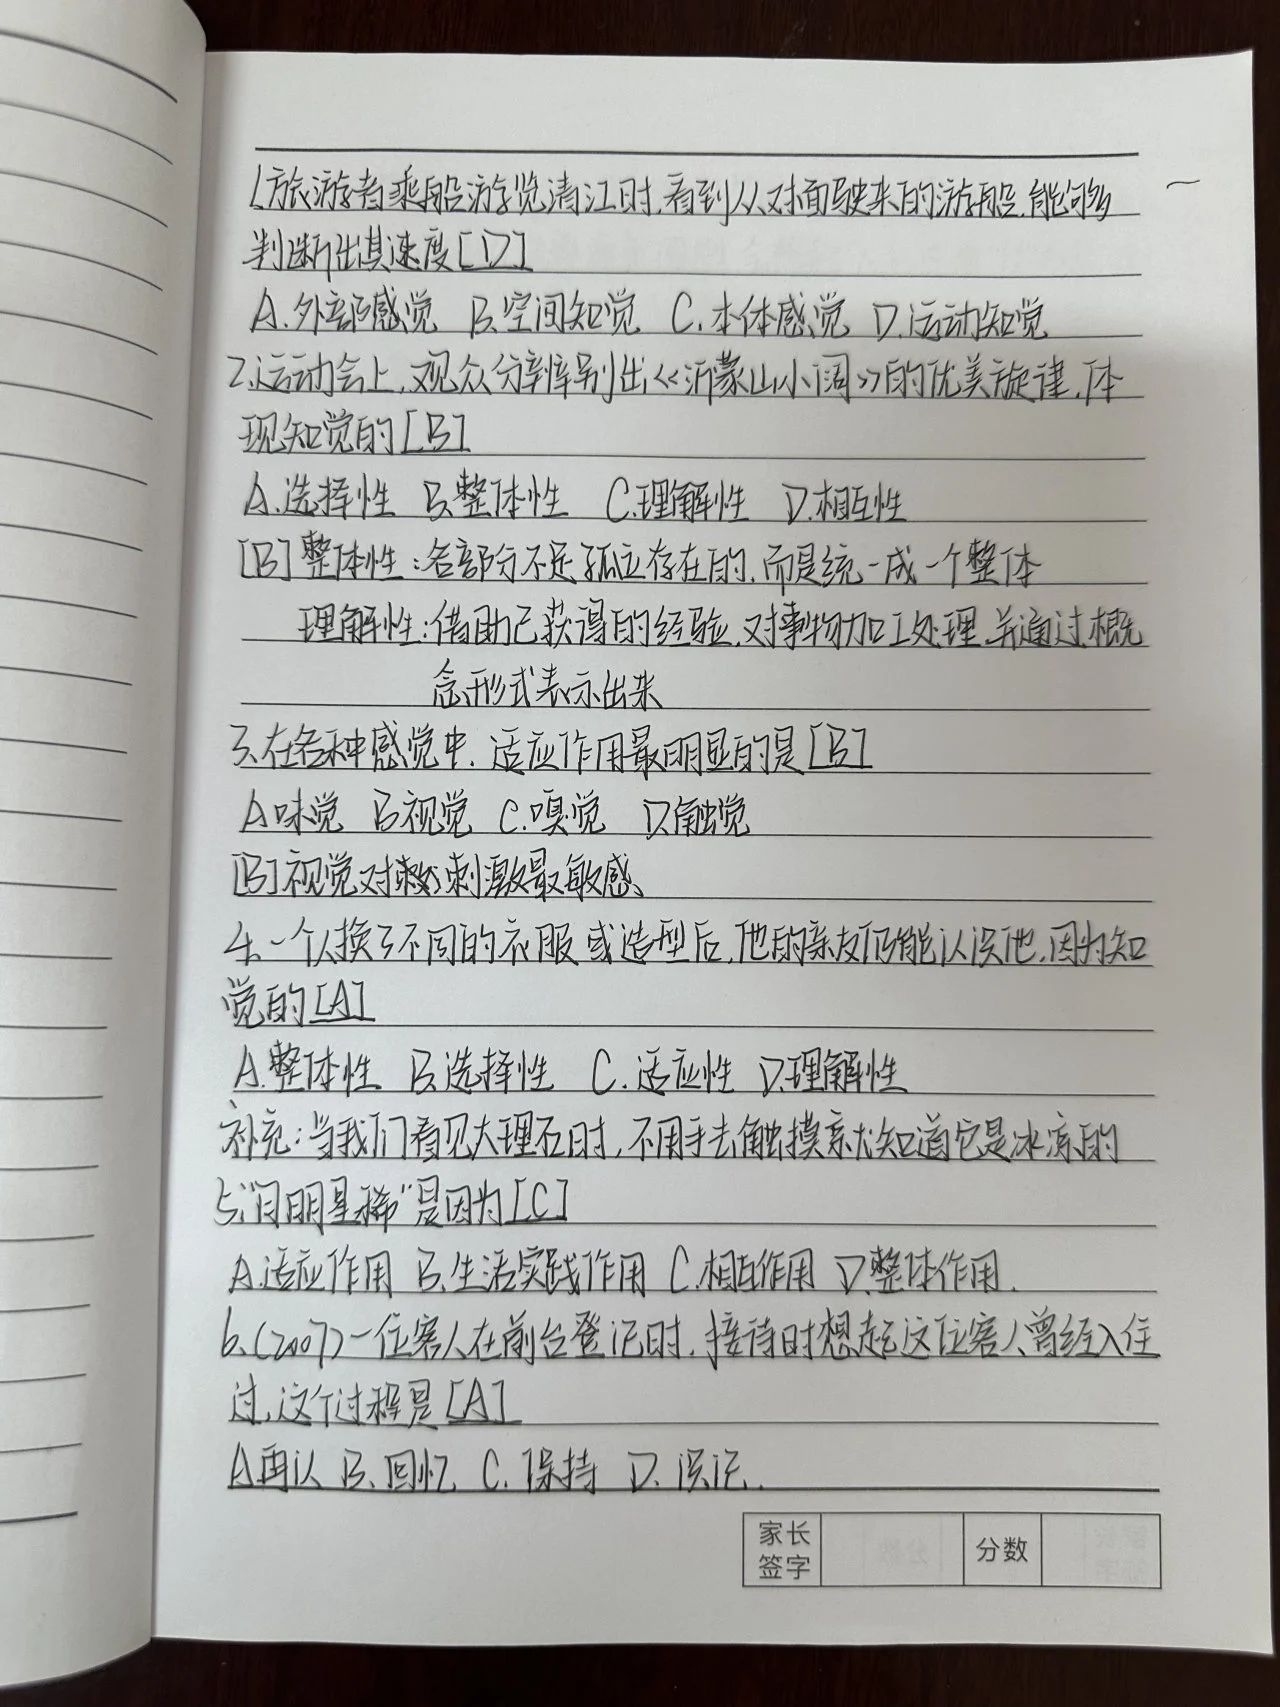 1.旅游者乘船游览清江时,看到从对面驶来的游船,能够
判断出其速度[D]
A.外部感觉 B.空间知觉 C.本体感觉 D.运动知觉
2.运动会上,观众分辨别出《沂蒙山小调》的优美旋律,体
现知觉的[B]
A.选择性 B.整体性 C.理解性 D.相互性
[B]整体性:各部分不是孤立存在的,而是统一成一个整体
理解性:借助己获得的经验,对事物加工处理,并通过概
念形式表示出来
3.在各种感觉中,适应作用最明显的是[B]
A.味觉 B.视觉 C.嗅觉 D.触觉
[B]视觉对刺激最敏感、
4.一个人换了不同的衣服或造型后,他的亲友仍能认识他,因为知
觉的[A]
A.整体性 B.选择性 C.适应性 D.理解性
补充:当我们看见大理石时,不用手去触摸就知道它是冰凉的
5."月明星稀"是因为[C]
A.适应作用 B.生活实践作用 C.相互作用 D.整体作用.
6.(2007)一位客人在前台登记时,接待时想起这位客人曾经入住
过,这个过程是[A]
A.再认 B.回忆 C.保持 D.识记.
家长
签字
分数